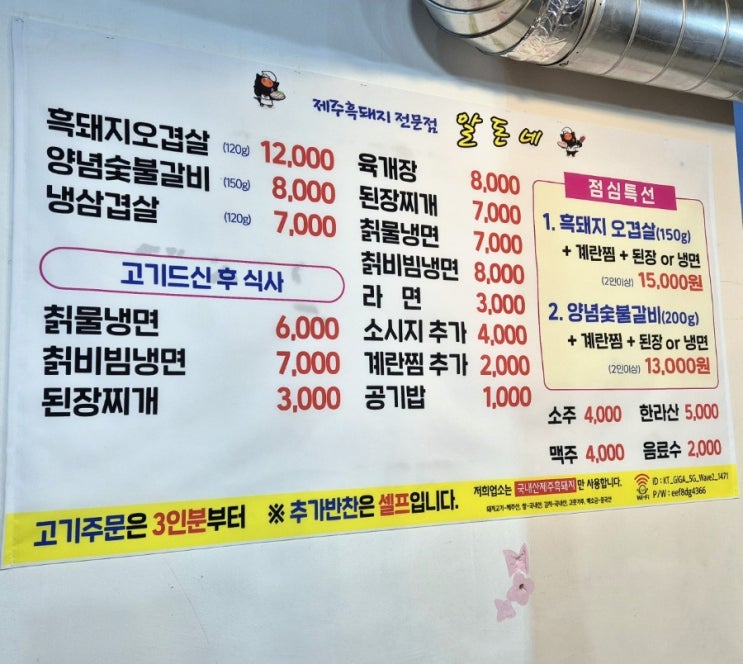 제주흑돼지 전문점 알돈네
흑돼지오겹살 (120g) 12,000
양념숯불갈비 (150g) 8,000
냉삼겹살 (120g) 7,000
고기드신 후 식사
칡물냉면 6,000
칡비빔냉면 7,000
된장찌개 3,000
육개장 8,000
된장찌개 7,000
칡물냉면 7,000
칡비빔냉면 8,000
라 면 3,000
소시지 추가 4,000
계란찜 추가 2,000
공기밥 1,000
점심특선
1. 흑돼지 오겹살(150g)
+ 계란찜 + 된장 or 냉면
(2인이상) 15,000원
2. 양념숯불갈비(200g)
+ 계란찜 + 된장 or 냉면
(2인이상) 13,000원
소주 4,000 한라산 5,000
맥주 4,000 음료수 2,000
고기주문은 3인분부터 ※ 추가반찬은 셀프입니다.
저희업소는 국내산제주흑돼지만 사용합니다.
돼지고기-제주산, 쌀-국내산, 김치-국내산, 고춧가루,
Wi-Fi
ID : KT_GIGA_5G_Wave2_1471
P/W : eef8dg4366